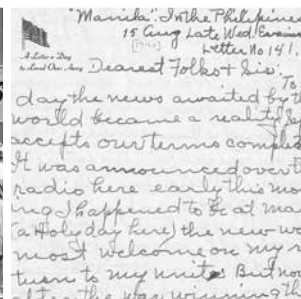 "Manila" In the Philipines
15 Aug Late Wed. Evenin
[1945]
Letter No 141.
A Letter a Day
to Loved Ones Away
Dearest Folks & Sis:
To
day the news awaited by th
world became a reality Jap
accepts our terms comple
It was announced over th
radio here early this mo
ing I happened to be at mas
(a Holyday here) the new wa
most welcome on my r
turn to my unit. But now
after the war winning th